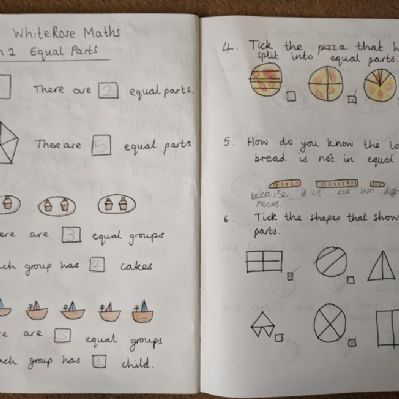 WhiteRose Maths
1 Equal Parts
There are 2 equal parts.
There are 5 equal parts
are 3 equal groups
group has 2 cakes
are 5 equal groups
group has 1 child.
4. Tick the pizza that
split into equal parts.
5. How do you know the
bread is not in equal
because it is cut into
6. Tick the shapes that show
parts.